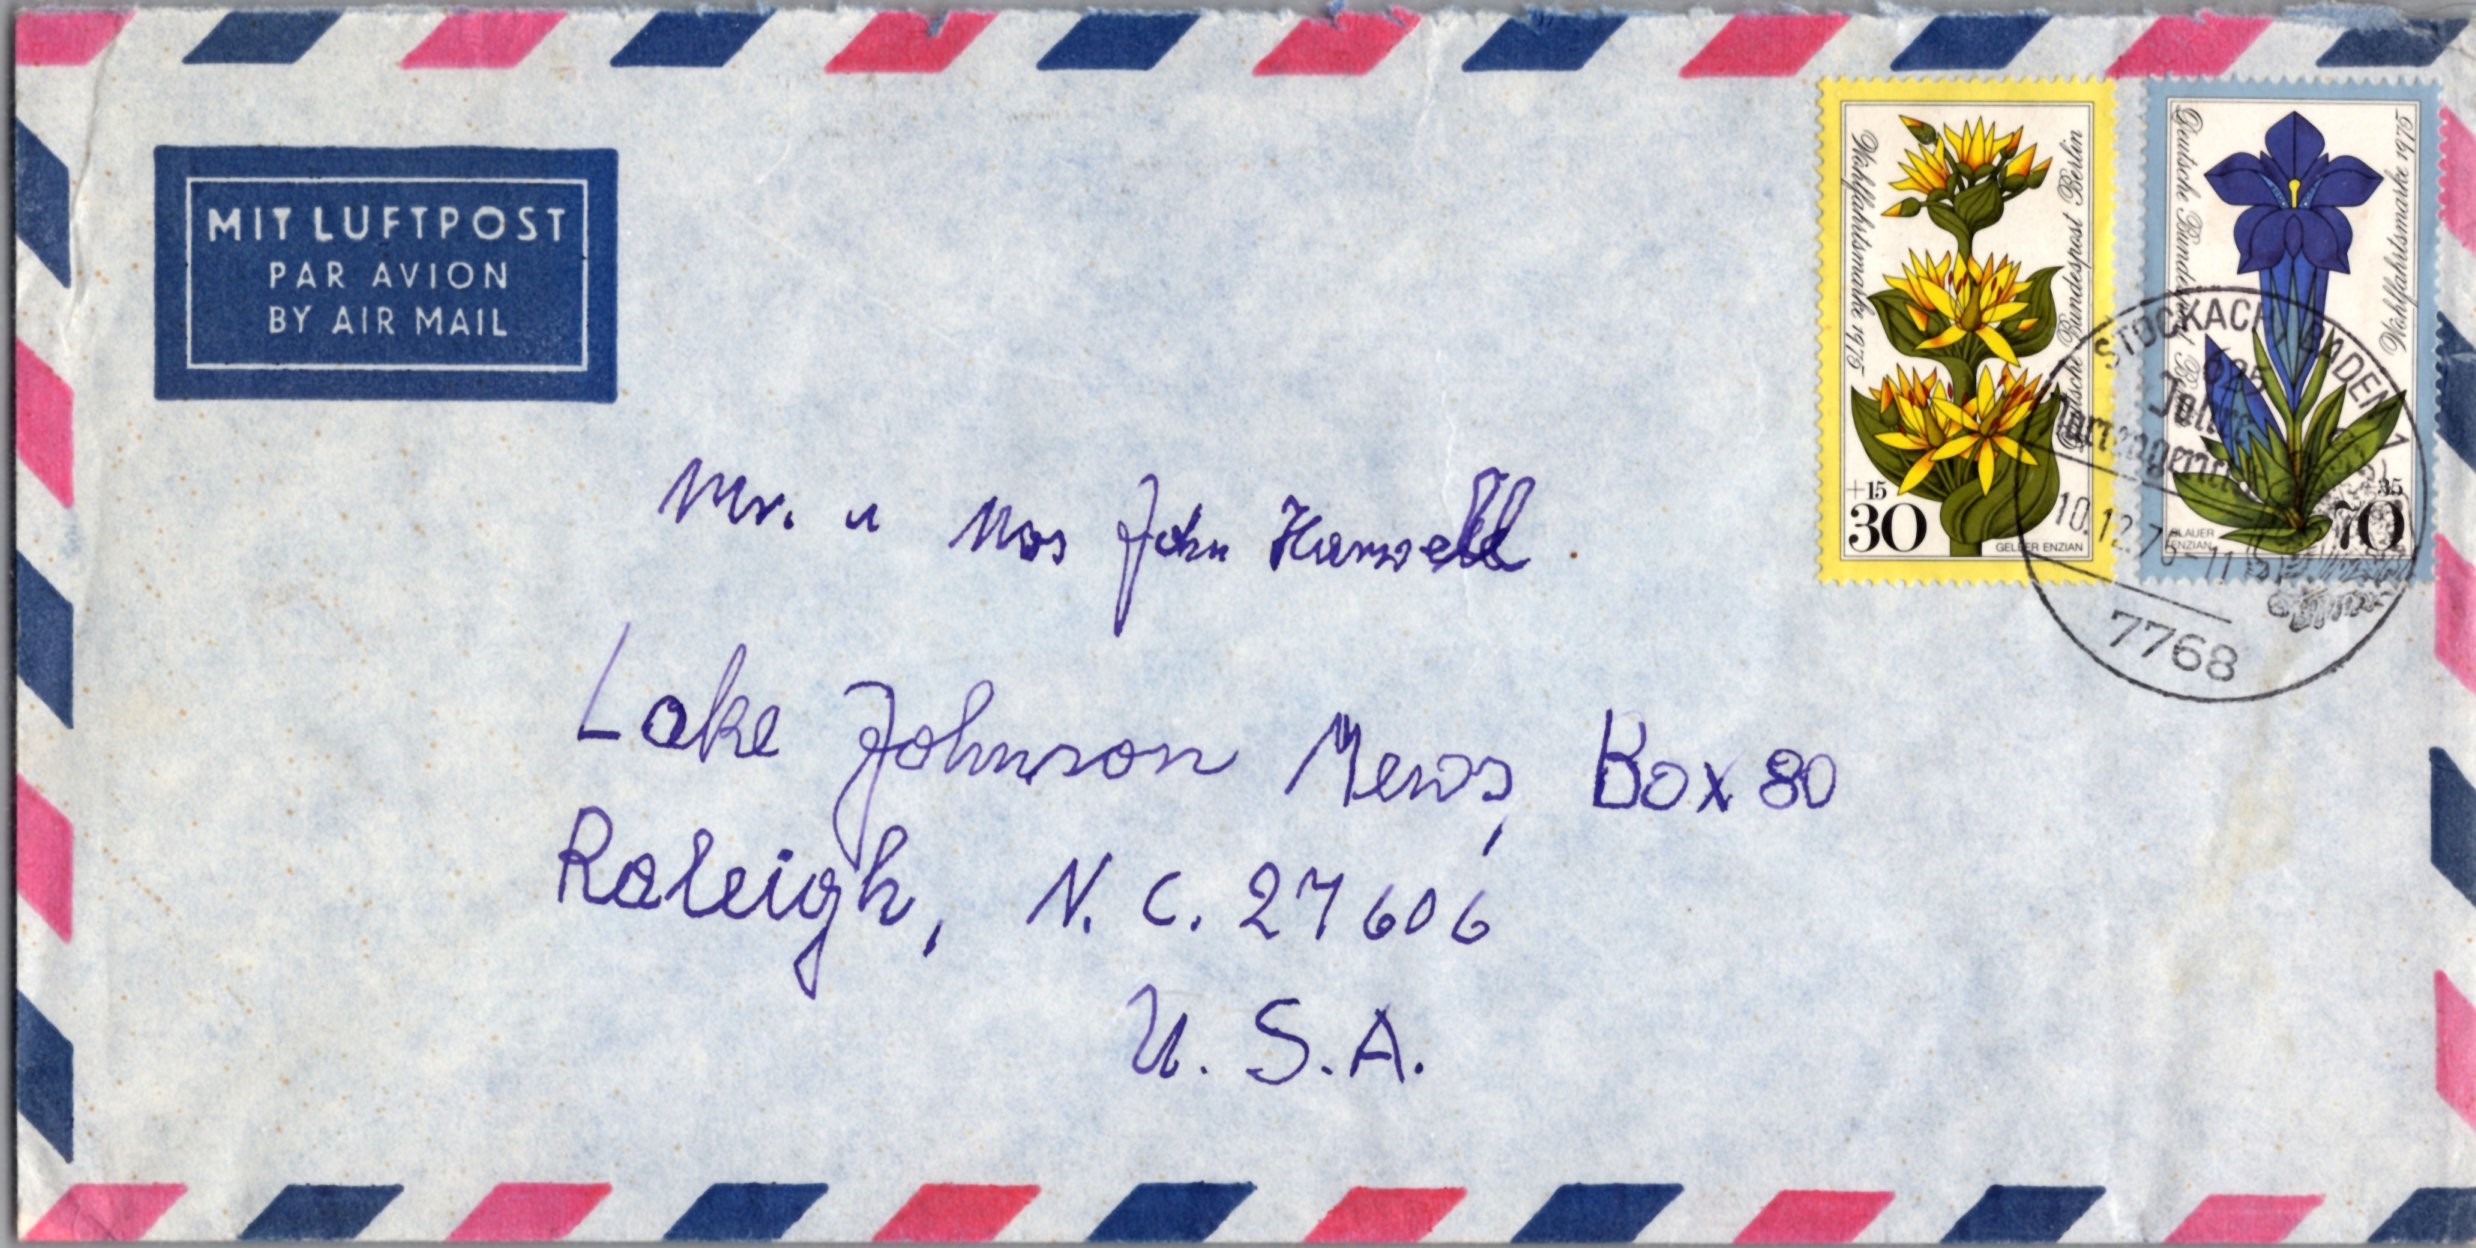 MIT LUFTPOST
PAR AVION
BY AIR MAIL
Wohlfahrtsmarke 1975
Deutsche Bundespost Berlin
+15
30
GELBER ENZIAN
Deutsche Bundespost Berlin
Wohlfahrtsmarke 1975
35
70
BLAUER
ENZIAN
STOCKACH BADEN 1
625
Narrengericht
10.12.75-11
7768
Mr. u Mrs John
Lake Johnson Mews, Box 80
Raleigh, N.C. 27606
U.S.A.